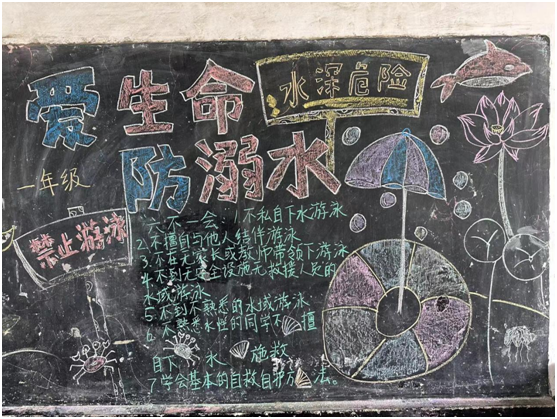 爱生命
水深危险
防溺水
一年级
禁止游泳
六不一会：1不私自下水游泳
2.不擅自与他人结伴游泳
3.不在无家长或教师带领下游泳
4.不到无安全设施无救援人员的
水域游泳
5.不到不熟悉的水域游泳
6.不熟悉水性的同学不擅
自下水施救
7学会基本的自救自护方法。